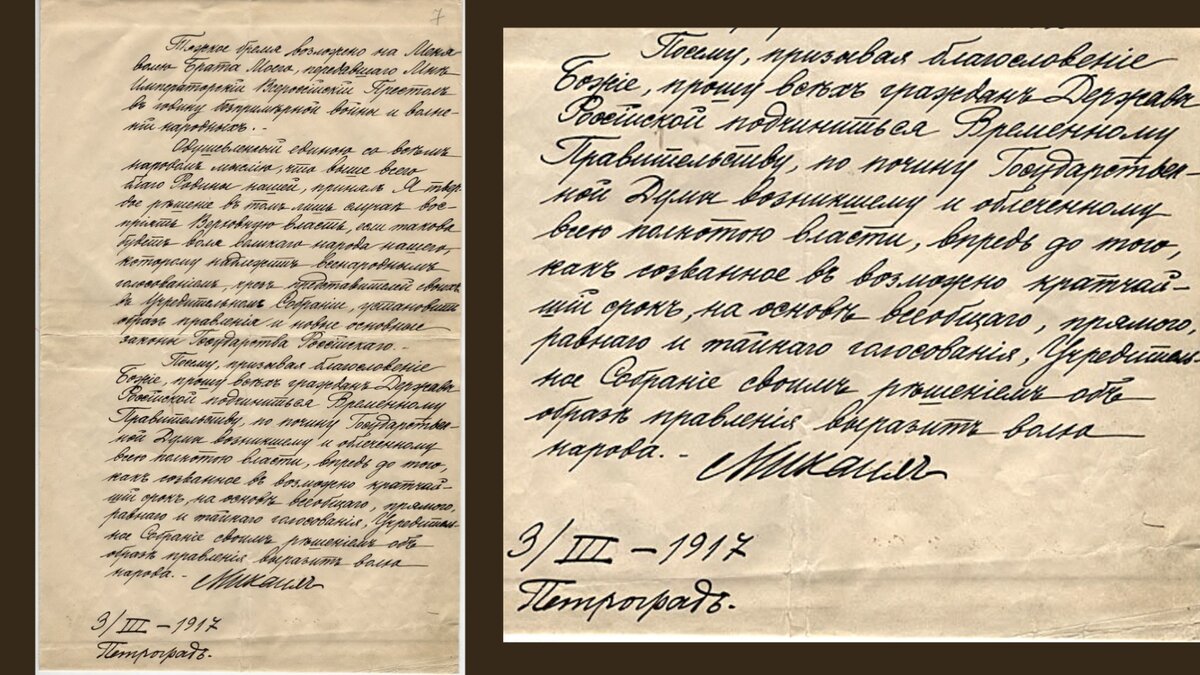 7
Тяжкое бремя возложено на Меня
волею Брата Моего, передавшаго Мнѣ
Императорскій Всероссійскій Престолъ
въ годину безпримѣрной войны и волне-
ній народныхъ. -
Одушевленный единою со всѣмъ
народомъ мыслію, что выше всего
благо Родины нашей, принялъ Я твер-
дое рѣшеніе въ томъ лишь случаѣ вос-
пріять Верховную власть, если такова
будетъ воля великаго народа нашего,
которому надлежитъ всенароднымъ
голосованіемъ, чрезъ представителей своихъ
въ Учредительномъ Собраніи, установить
образъ правленія и новые основные
законы Государства Россійскаго. -
Посему, призывая благословеніе
Божіе, прошу всѣхъ гражданъ Державы
Россійской подчиниться Временному
Правительству, по почину Государствен-
ной Думы возникшему и облеченному
всею полнотою власти, впредь до того,
какъ созванное въ возможно кратчай-
шій срокъ, на основѣ всеобщаго, прямого,
равнаго и тайнаго голосованія, Учредитель-
ное Собраніе своимъ рѣшеніемъ объ
образѣ правленія выразитъ волю
народа. -
Михаилъ
3/III - 1917
Петроградъ.
Посему, призывая благословеніе
Божіе, прошу всѣхъ гражданъ Державы
Россійской подчиниться Временному
Правительству, по почину Государствен-
ной Думы возникшему и облеченному
всею полнотою власти, впредь до того,
какъ созванное въ возможно кратчай-
шій срокъ, на основѣ всеобщаго, прямого,
равнаго и тайнаго голосованія, Учредитель-
ное Собраніе своимъ рѣшеніемъ объ
образѣ правленія выразитъ волю
народа. -
Михаилъ
3/III - 1917
Петроградъ.